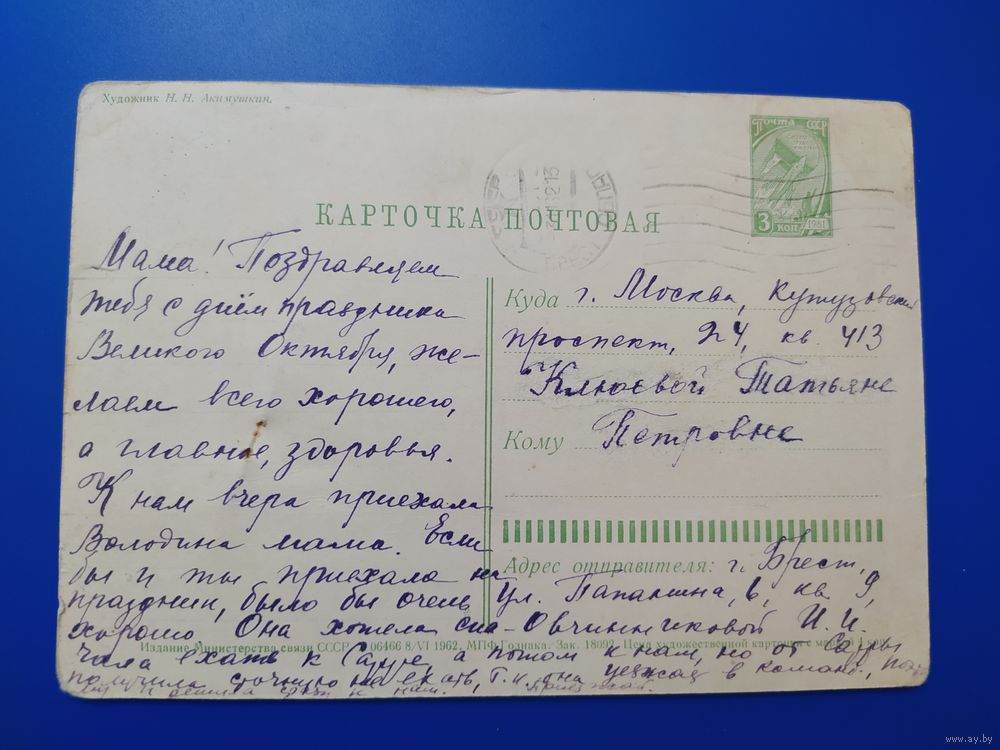 Художник Н. Н. Акимушкин.
ПОЧТА СССР
3 КОП
1961
КАРТОЧКА ПОЧТОВАЯ
Мама! Поздравляем
тебя с днём праздника
Великого Октября, же-
лаем всего хорошего,
а главное, здоровья.
К нам вчера приехала
Володина мама. Если
бы и ты приехала на
праздник, было бы очень
хорошо. Она хотела сна-
чала ехать к а потом к нам, но от
получила не ехать, т. к. она в команд.,
и решила к нам. Приезжай.
Куда г. Москва, Кутузовский
проспект, 24, кв. 413
Клюевой Татьяне
Кому Петровне
Адрес отправителя: г. Брест,
ул. Папанина, 6, кв. 9,
Овчинниковой И. И.
Издание Министерства связи СССР. 06466 8/VI 1962. МПФ Гознака. Зак. 18092. Цена художественной карточки с маркой 4 коп.
www.ay.by